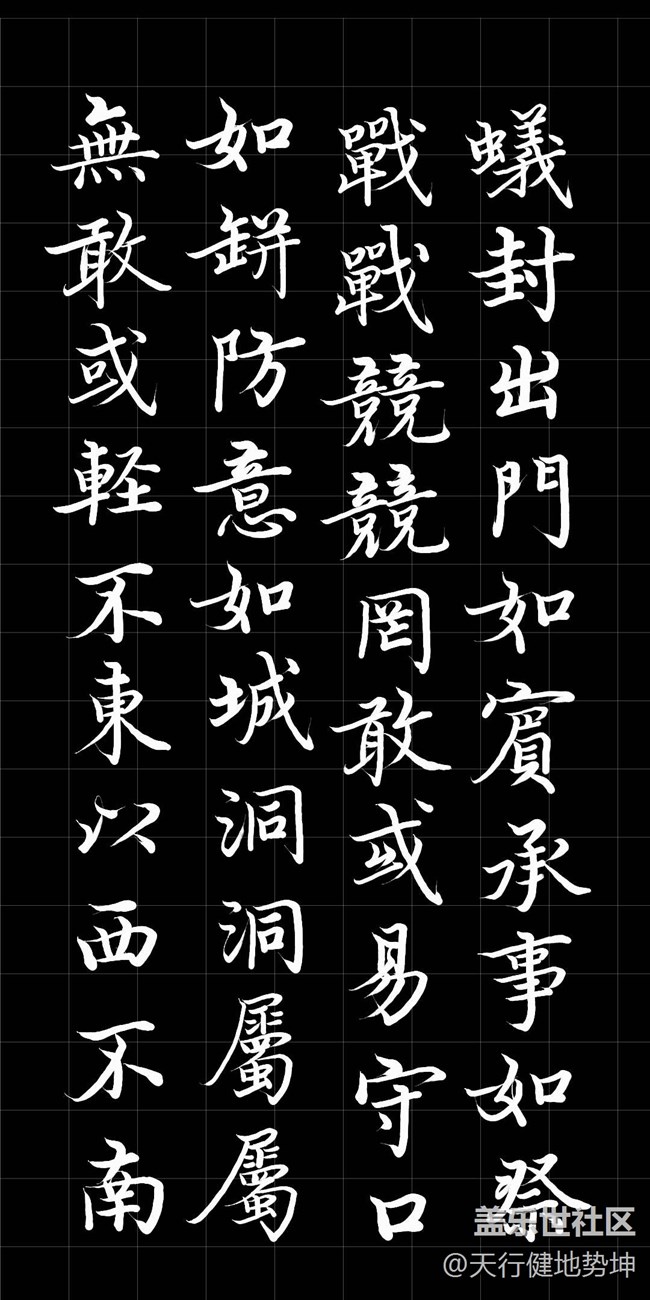 蟻封出門如賓承事如祭
戰戰競競罔敢或易守口
如缾防意如城洞洞屬屬
無敢或軽不東以西不南
盖乐世社区
@天行健地势坤